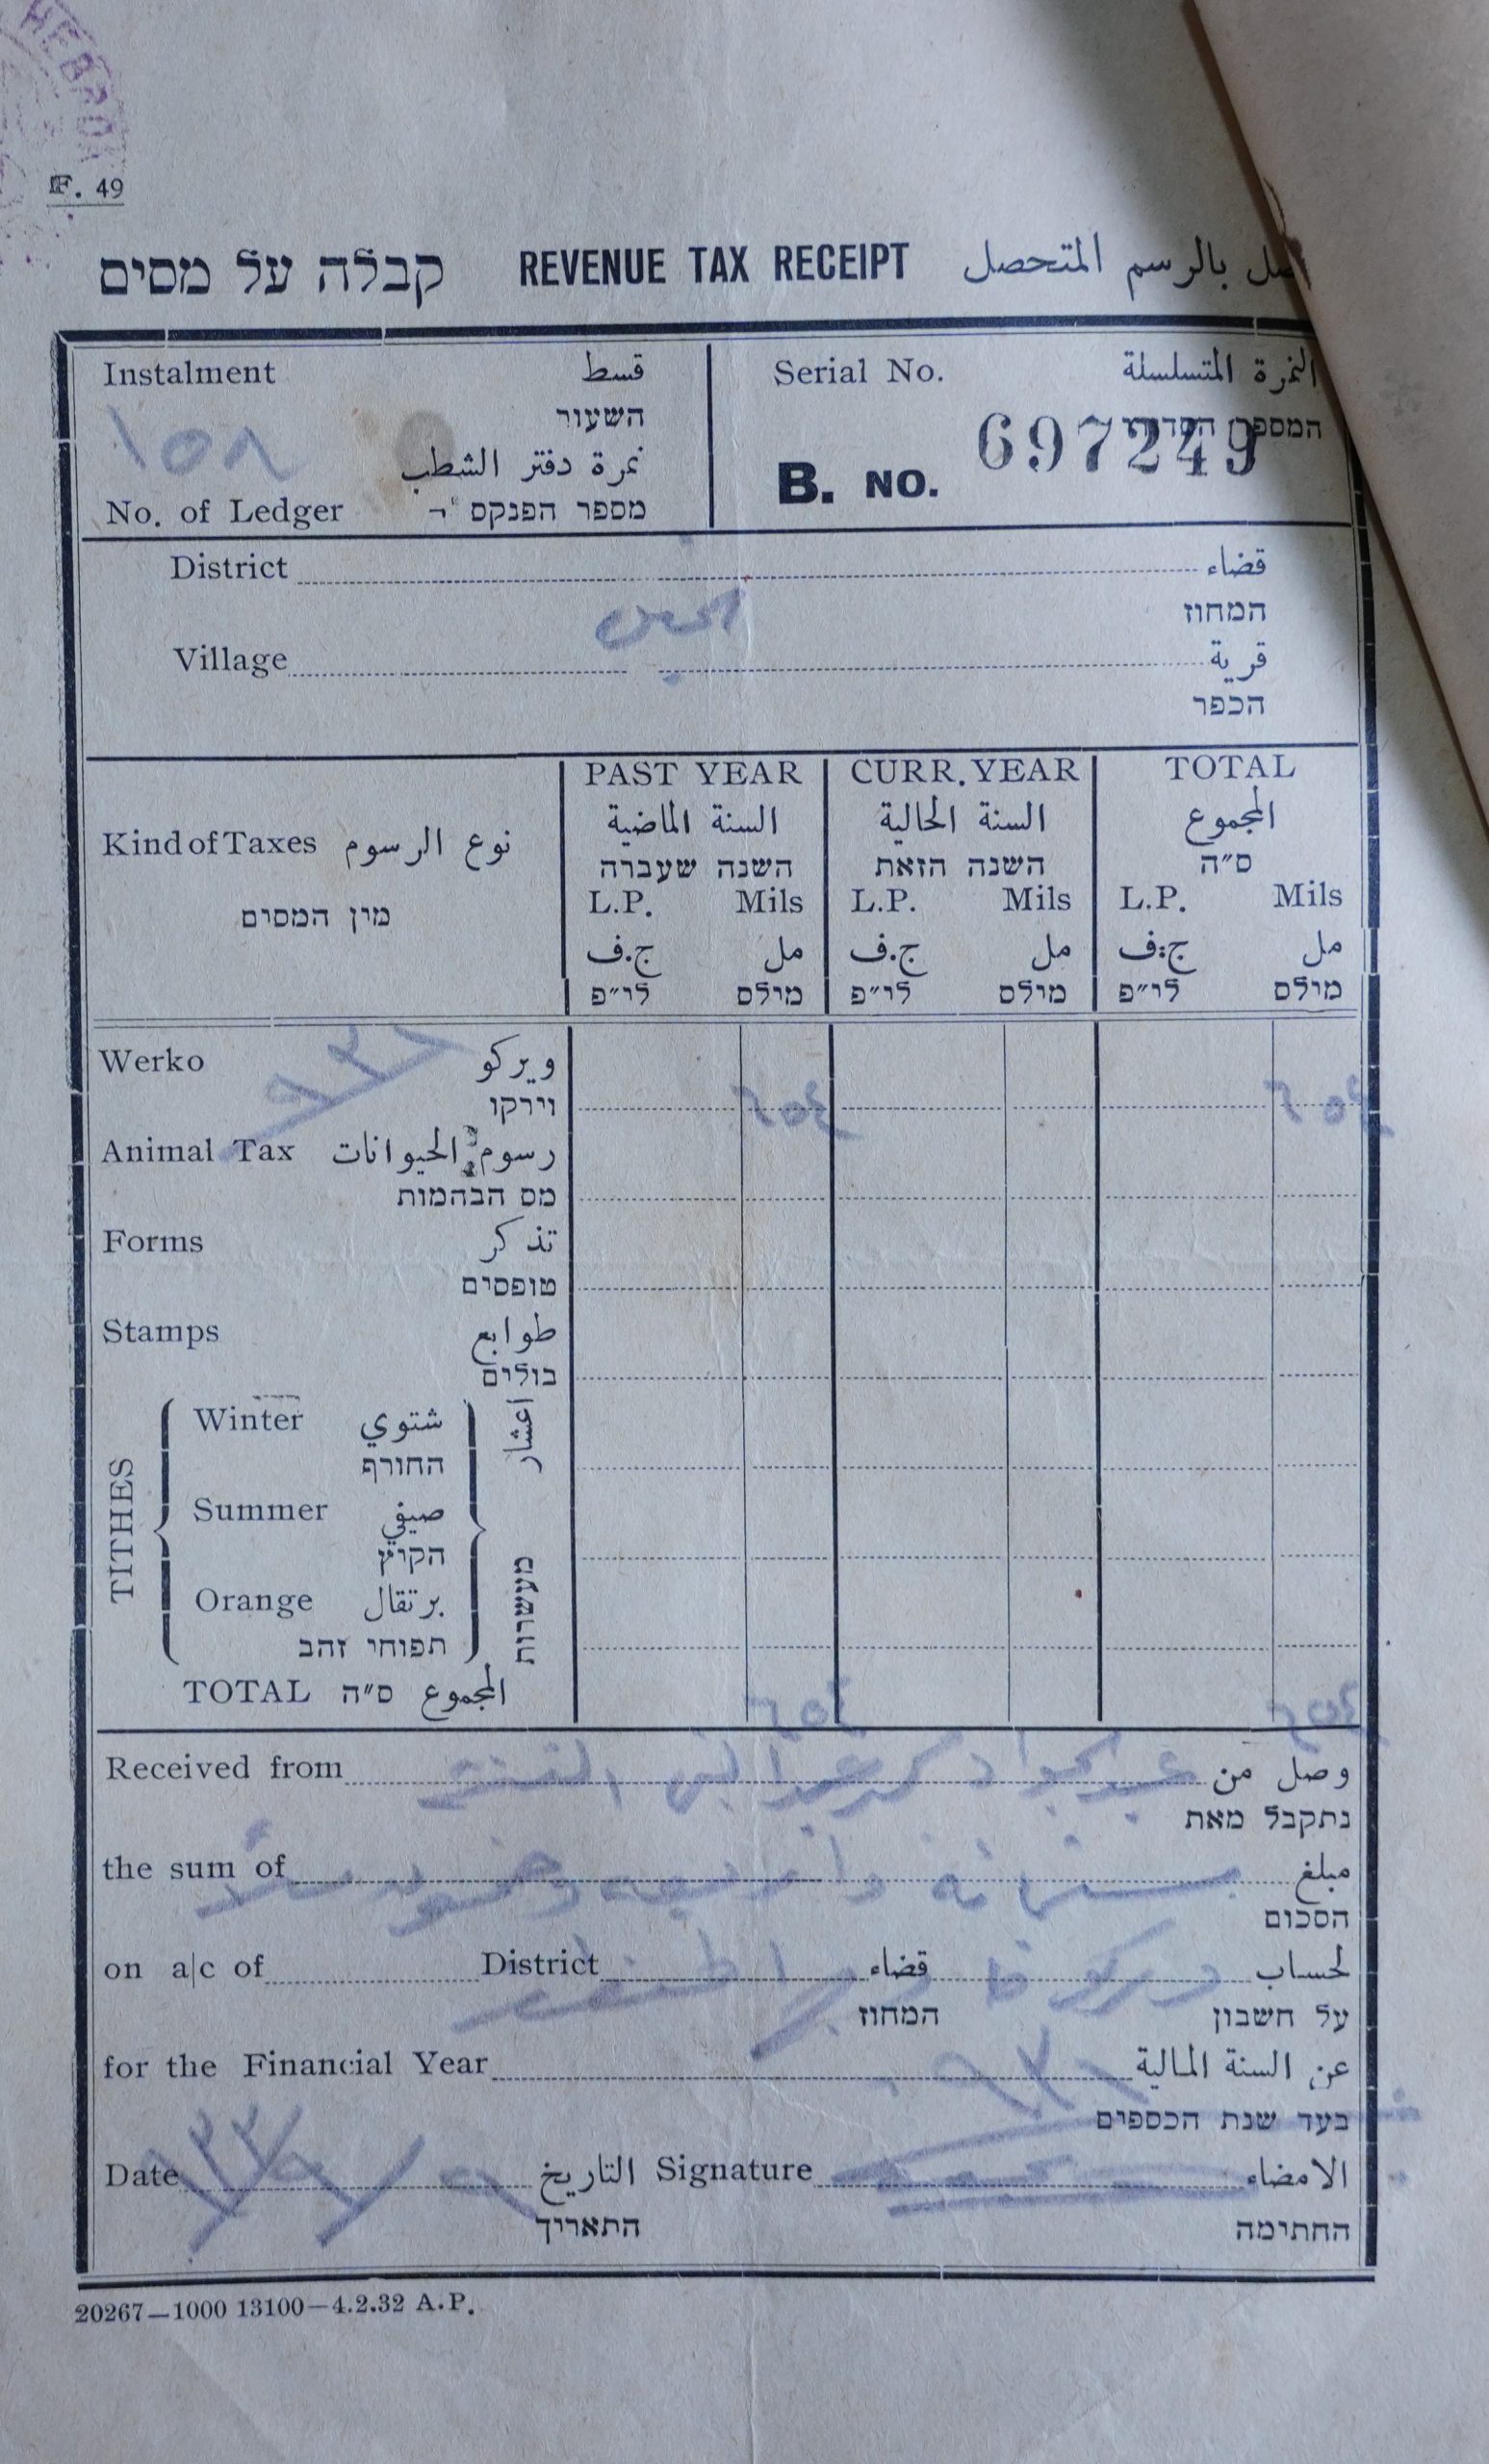 HEBRON
F. 49
קבלה על מסים REVENUE TAX RECEIPT بالرسم المتحصل
Instalment قسط
השעור
١٥٨
نمرة دفتر الشطب
No. of Ledger מספר הפנקס
Serial No. النمرة المتسلسلة
המספר הסדורי
B. NO. 697249
District قضاء
המחוז
Village قرية
הכפר
Kind of Taxes نوع الرسوم
מין המסים
PAST YEAR CURR. YEAR TOTAL
السنة الماضية السنة الحالية المجموع
השנה שעברה השנה הזאת ס״ה
L.P. Mils L.P. Mils L.P. Mils
ج.ف مل ج.ف مل ج.ف مل
לי״פ מילס לי״פ מילס לי״פ מילס
Werko ويركو
ווירקו ٦٥٤ ٦٥٤
Animal Tax رسوم الحيوانات
מס הבהמות
Forms تذ كر
טופסים
Stamps طوابع
בולים
TITHES اعشار מעשרות
Winter شتوي
החורף
Summer صيفي
הקיץ
Orange برتقال
תפוחי זהב
TOTAL ס״ה المجموع ٦٥٤ ٦٥٤
Received from عبد الجواد وصل من
נתקבל מאת
the sum of ستماية واربعه وخمسون ملاً مبلغ
הסכום
on a|c of District قضاء ويركو لحساب
המחוז על חשבון
for the Financial Year عن السنة المالية
בעד שנת הכספים
Date التاريخ Signature الامضاء
התאריך החתימה
20267—1000 13100—4.2.32 A.P.